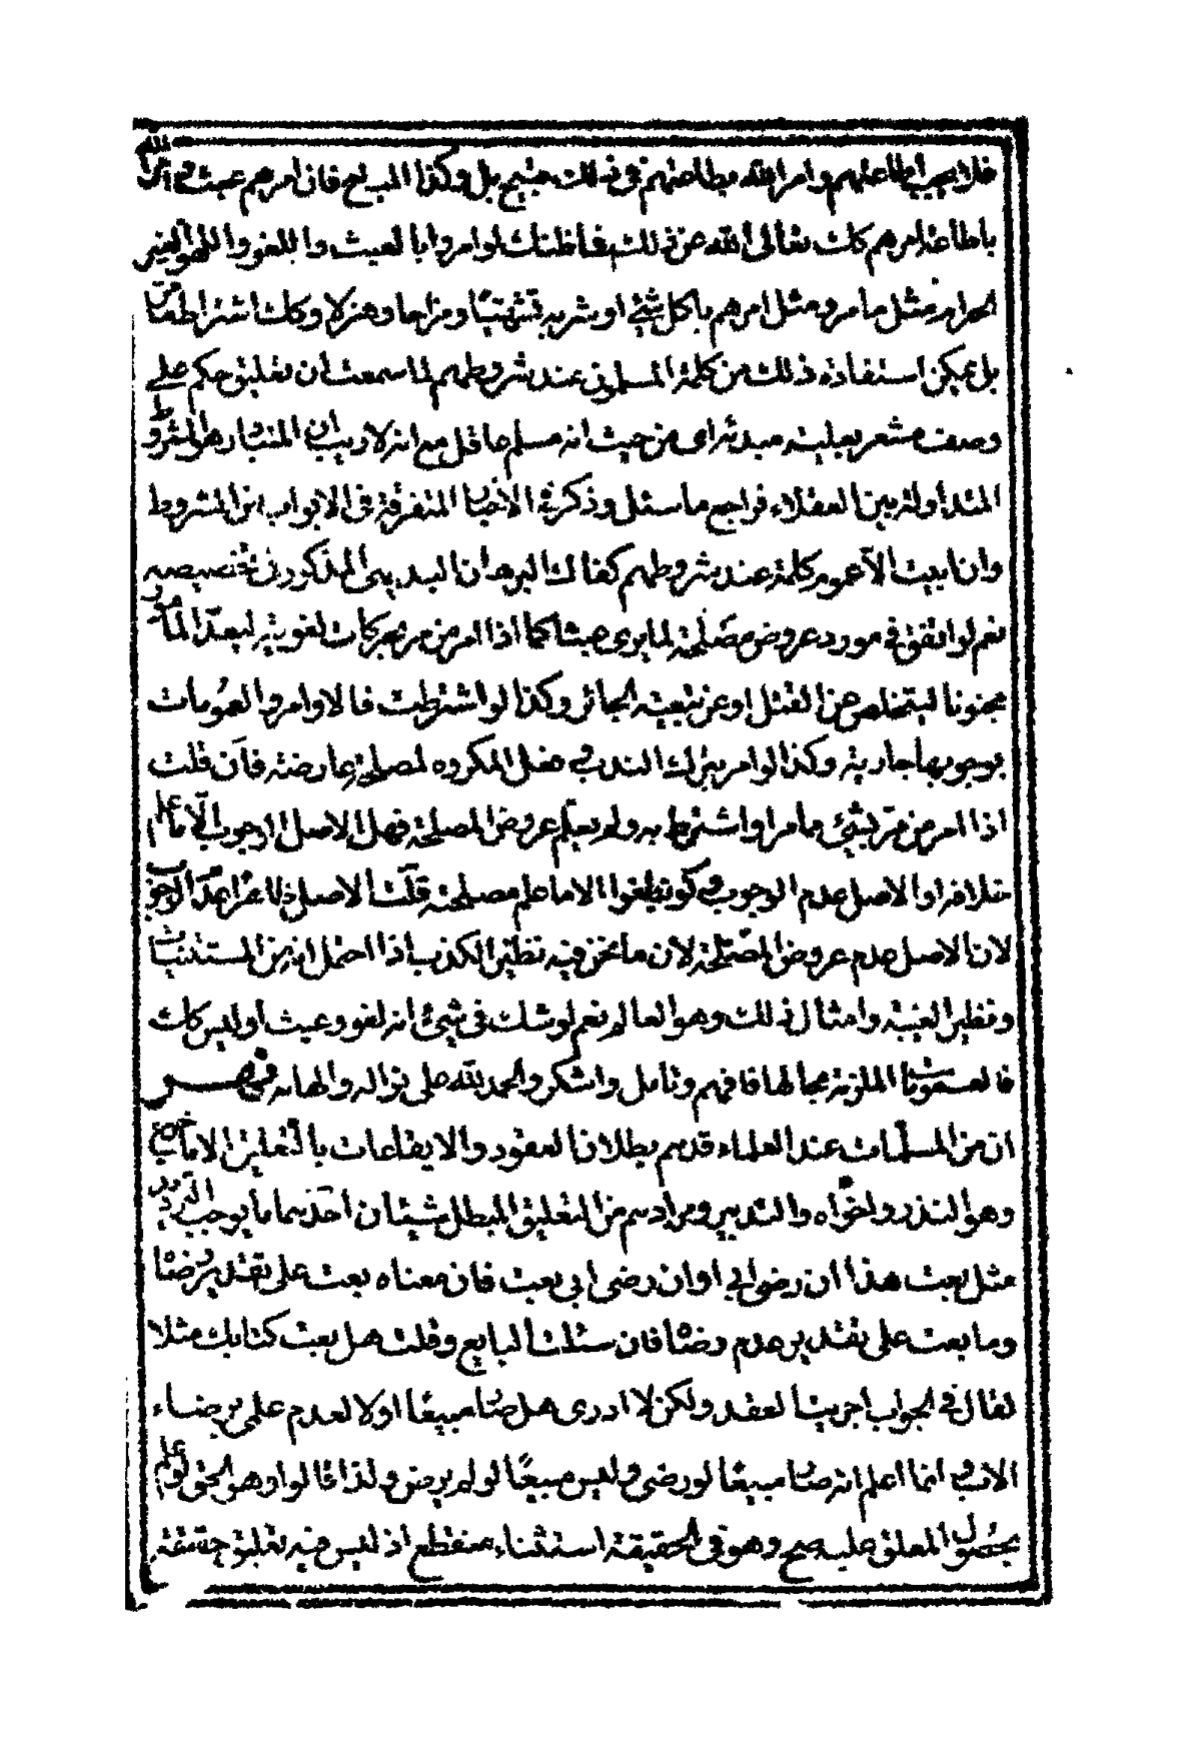 فلا يجب اطاعتهم وامر الله باطاعتهم في ذلك قبيح بل وكذا المباح فان امرهم عبث وامر الله
باطاعة امرهم كك تعالى الله عن ذلك فما ظنك لو امروا بالعبث واللغو واللهو الغير
الحرام مثل ما مر ومثل امرهم باكل شئ او شربه تشهيا ومزاحا وهزلا وكك اشتراطها
بل يمكن استفادة ذلك من كلمة المسلمون عند شروطهم لما سمعت ان تعليق حكم على
وصف مشعر بعلية مبدئه اى من حيث انه مسلم عاقل مع انه لا ريب ان المتبادر هو الشروط
المتداولة بين العقلاء فراجع ما سئل وذكر في الاخبار المتفرقة في الابواب من الشروط
وان ابيت الا عموم كلمة عند شروطهم كفاك البرهان البديهى المذكور في تخصيصه
نعم لو اتفق في مورد عروض مصلحة لما يرى عبثا كما اذا امر من مر بحركات لغوية ليعد المأمور
مجنونا ليتخلص عن القتل او عن تبعية الجائر وكذا لو اشترطت فالاوامر والعمومات
بوجوبها جارية وكذا لو امر بترك الندب وفعل المكروه لمصلحة عارضة فان قلت
اذا امر من مر بشئ مما مر او اشترط به ولم يعلم عروض المصلحة فهل الاصل الوجوب الا ما علم
خلافه او الاصل عدم الوجوب وكونه لغوا الا ما علم مصلحته قلت الاصل
لان الاصل عدم عروض المصلحة لان ما نحن فيه نظير الكذب اذا احتمل انه من المستثنيات
ونظير الغيبة وامثال ذلك وهو العالم نعم لو شك في شئ انه لغو وعبث او ليس كك
فالعمومات الملزمة مجالها فافهم وتامل واشكر والحمد لله على نواله والهامه
ان من المسلمات عند العلماء قدهم بطلان العقود والايقاعات بالتعليق الا ما خرج
وهو النذر واخواه والتدبير ومرادهم من التعليق المبطل شيئان احدهما ما يوجب الترديد
مثل بعت هذا ان رضى ابي او ان رضى ابي بعت فان معناه بعت على تقدير رضاه
وما بعت على تقدير عدم رضاه فان سئلت البايع وقلت هل بعت كتابك مثلا
لقال في الجواب اجريت العقد ولكن لا ادرى هل صار مبيعا اولا لعدم علمى برضاء
الاب وانما اعلم انه صار مبيعا لو رضى وليس مبيعا لو لم يرض ولذا قالوا وهو الحق لو علم
بحصول المعلق عليه صح وهو في الحقيقة استثناء منقطع اذ ليس فيه تعليق حقيقة